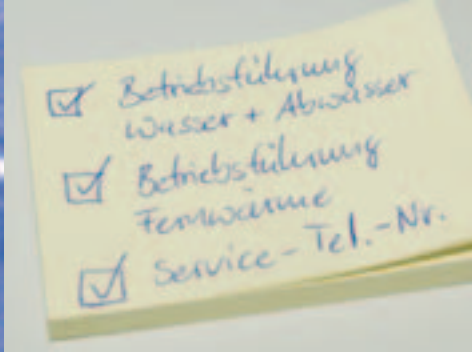 ☑ Betriebsführung
Wasser + Abwasser
☑ Betriebsführung
Fernwärme
☑ Service-Tel.-Nr.